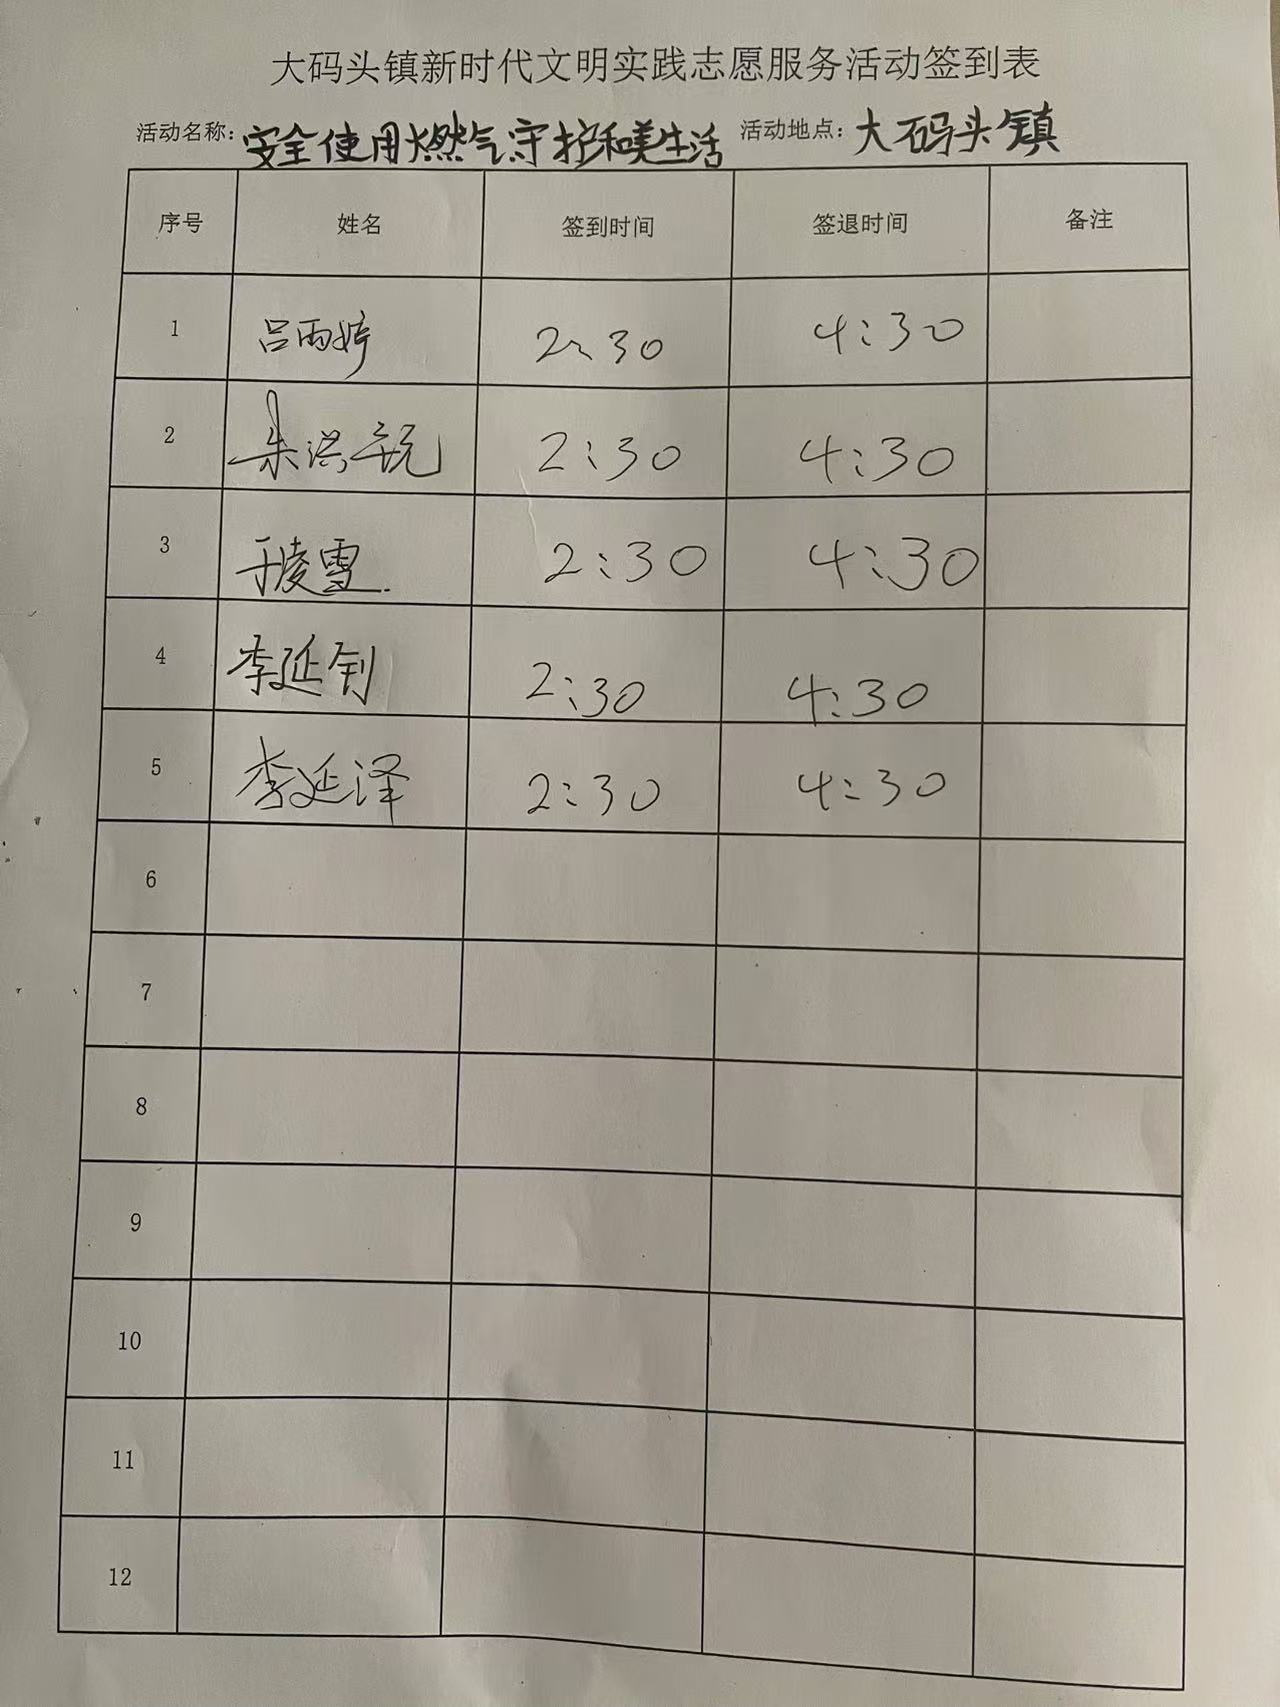 大码头镇新时代文明实践志愿服务活动签到表
活动名称：安全使用燃气守护和美生活 活动地点：大码头镇
序号 姓名 签到时间 签退时间 备注
1 吕雨婷 2:30 4:30
2 朱洪 2:30 4:30
3 于凌雪. 2:30 4:30
4 李延钊 2:30 4:30
5 李延泽 2:30 4:30
6
7
8
9
10
11
12